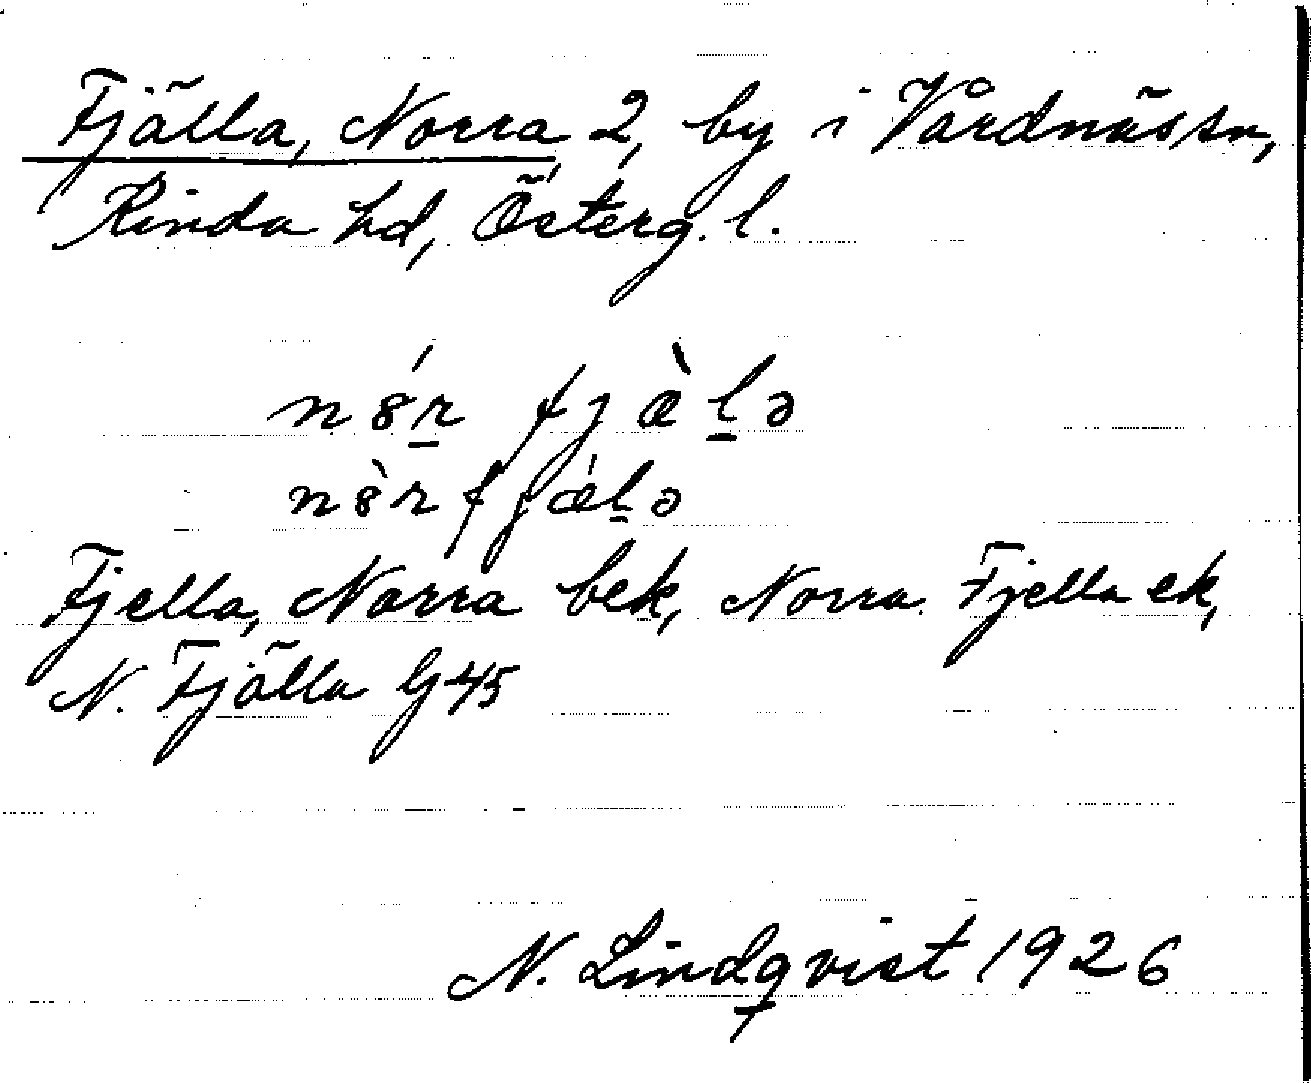 Fjälla, Norra 2, by i Vårdnäs sn,
Kinda hd, Österg. l.
nɞ́r̲ fjæ̀l̲ə
nɞ̀r fjǽl̲ə
Fjella, Norra bek, Norra Fjella ek,
N. Fjälla GJ 45
N. Lindqvist 1926